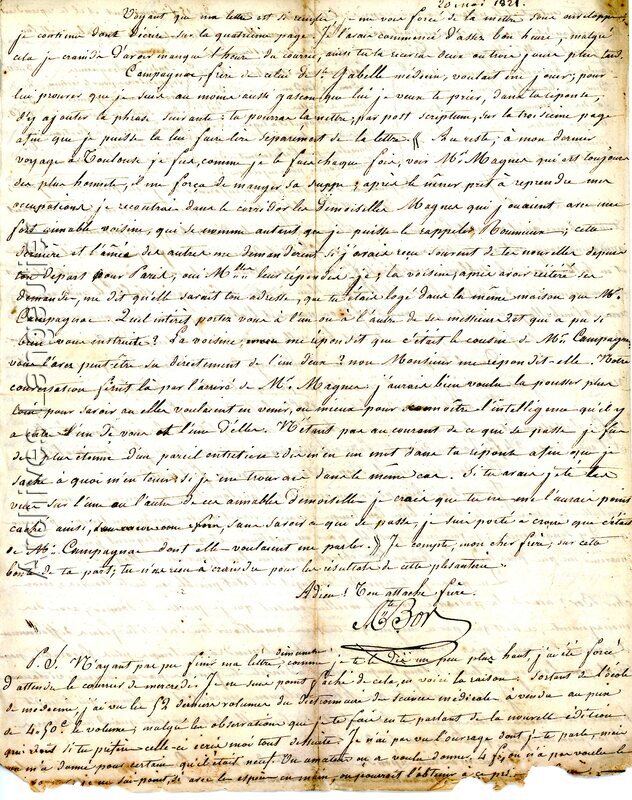 20 mai 1821.
Voyant que ma lettre est si remplie, je me vois forcé de la mettre sous enveloppe,
je continue donc d'écrire sur la quatrième page. Je l'avais commencé d'assez bon heure, malgré
cela je crains d'avoir manqué l'heure du courrier, ainsi tu la recevras deux ou trois jours plus tard.
Campagnac, frère de celui de St. Gabelle médecin, voulait un jour, pour
lui prouver que je suis au moins aussi gascon que lui je veux te prier, dans ta réponse,
d'y ajouter la phrase suivante: tu pourras la mettre, par post scriptum, sur la troisieme page
afin que je puisse la lui faire lire separément de la lettre « Au reste, à mon dernier
voyage à Toulouse je fus, comme je le fais chaque fois, voir Mr. Magnes qui est toujours
des plus honnete, il me força de manger sa soupe; après le diner pret à reprendre mes
occupations je recontrai dans le corridor les demoiselles Magnes qui jouaient avec une
fort aimable voisine, qui se nomme autant que je puisse le rappeler Roumieux; cette
dernière et l'ainée des autres me demandèrent si j'avais reçu souvent de tes nouvelles depuis
ton départ pour Paris, oui Mlles leur répondis-je; la voisine, après avoir réitéré ses
demandes, me dit qu'elle savait ton adresse, que tu étais logé dans la même maison que Mr.
Campagnac. Quel interet portez vous à l'un ou à l'autre de ses messieurs? et qui a pu si
bien vous instruire? La voisine, me repondit que c'était le cousin de Mr. Campagnac
vous l'avez peut-être su directement de l'un deux? non Monsieur me répondit-elle. Notre
conversation finit là par l'arrivé de Mr. Magnes; j'aurais bien voulu la pousser plus
loin pour savoir ou elles voulaient en venir, ou mieux pour connoître l'intelligence qu'il y
a entre l'un de vous et l'une d'elles. N'étant pas au courant de ce qui se passe je fus
des plus étonné d'un pareil entretien: dis m'en un mot dans ta réponse afin que je
sache à quoi m'en tenir si je me trouvais dans le même cas. Si tu avais jeté les
vues sur l'une ou l'autre de ces aimables demoiselles je crois que tu ne me l'aurais point
caché ainsi, sans savoir ce qui se passe, je suis porté à croire que c'était
de Mr. Campagnac dont elles voulaient me parler. » Je compte, mon cher frère, sur cette
bonté de ta part; tu n'as rien à craindre pour les résultats de cette plaisanterie.
Adieu! Ton attaché frère.
Bor
P. S. N'ayant pas pu finir ma lettre dimanche, comme je te le dis un peu plus haut, j'ai été forcé
d'attendre le courrier de mercredi. Je ne suis point fâché de cela, en voici la raison: Sortant de l'école
de médecine, j'ai vu les derniers volumes du dictionnaire des sciences médicales à vendre au prix
de 4. 50c. le volume; malgré les observations que je te fais en te parlant de la nouvelle édition,
qui si tu préfère celle-ci écris moi tout de suite. Je n'ai pas vu l'ouvrage dont je te parle, mais
on m'a donné pour certain qu'il était neuf. Un amateur en a voulu donner 4 f, on n'a pas voulu le
je ne sais point, si avec les espèces en main, on pourrait l'obtenir à ce prix